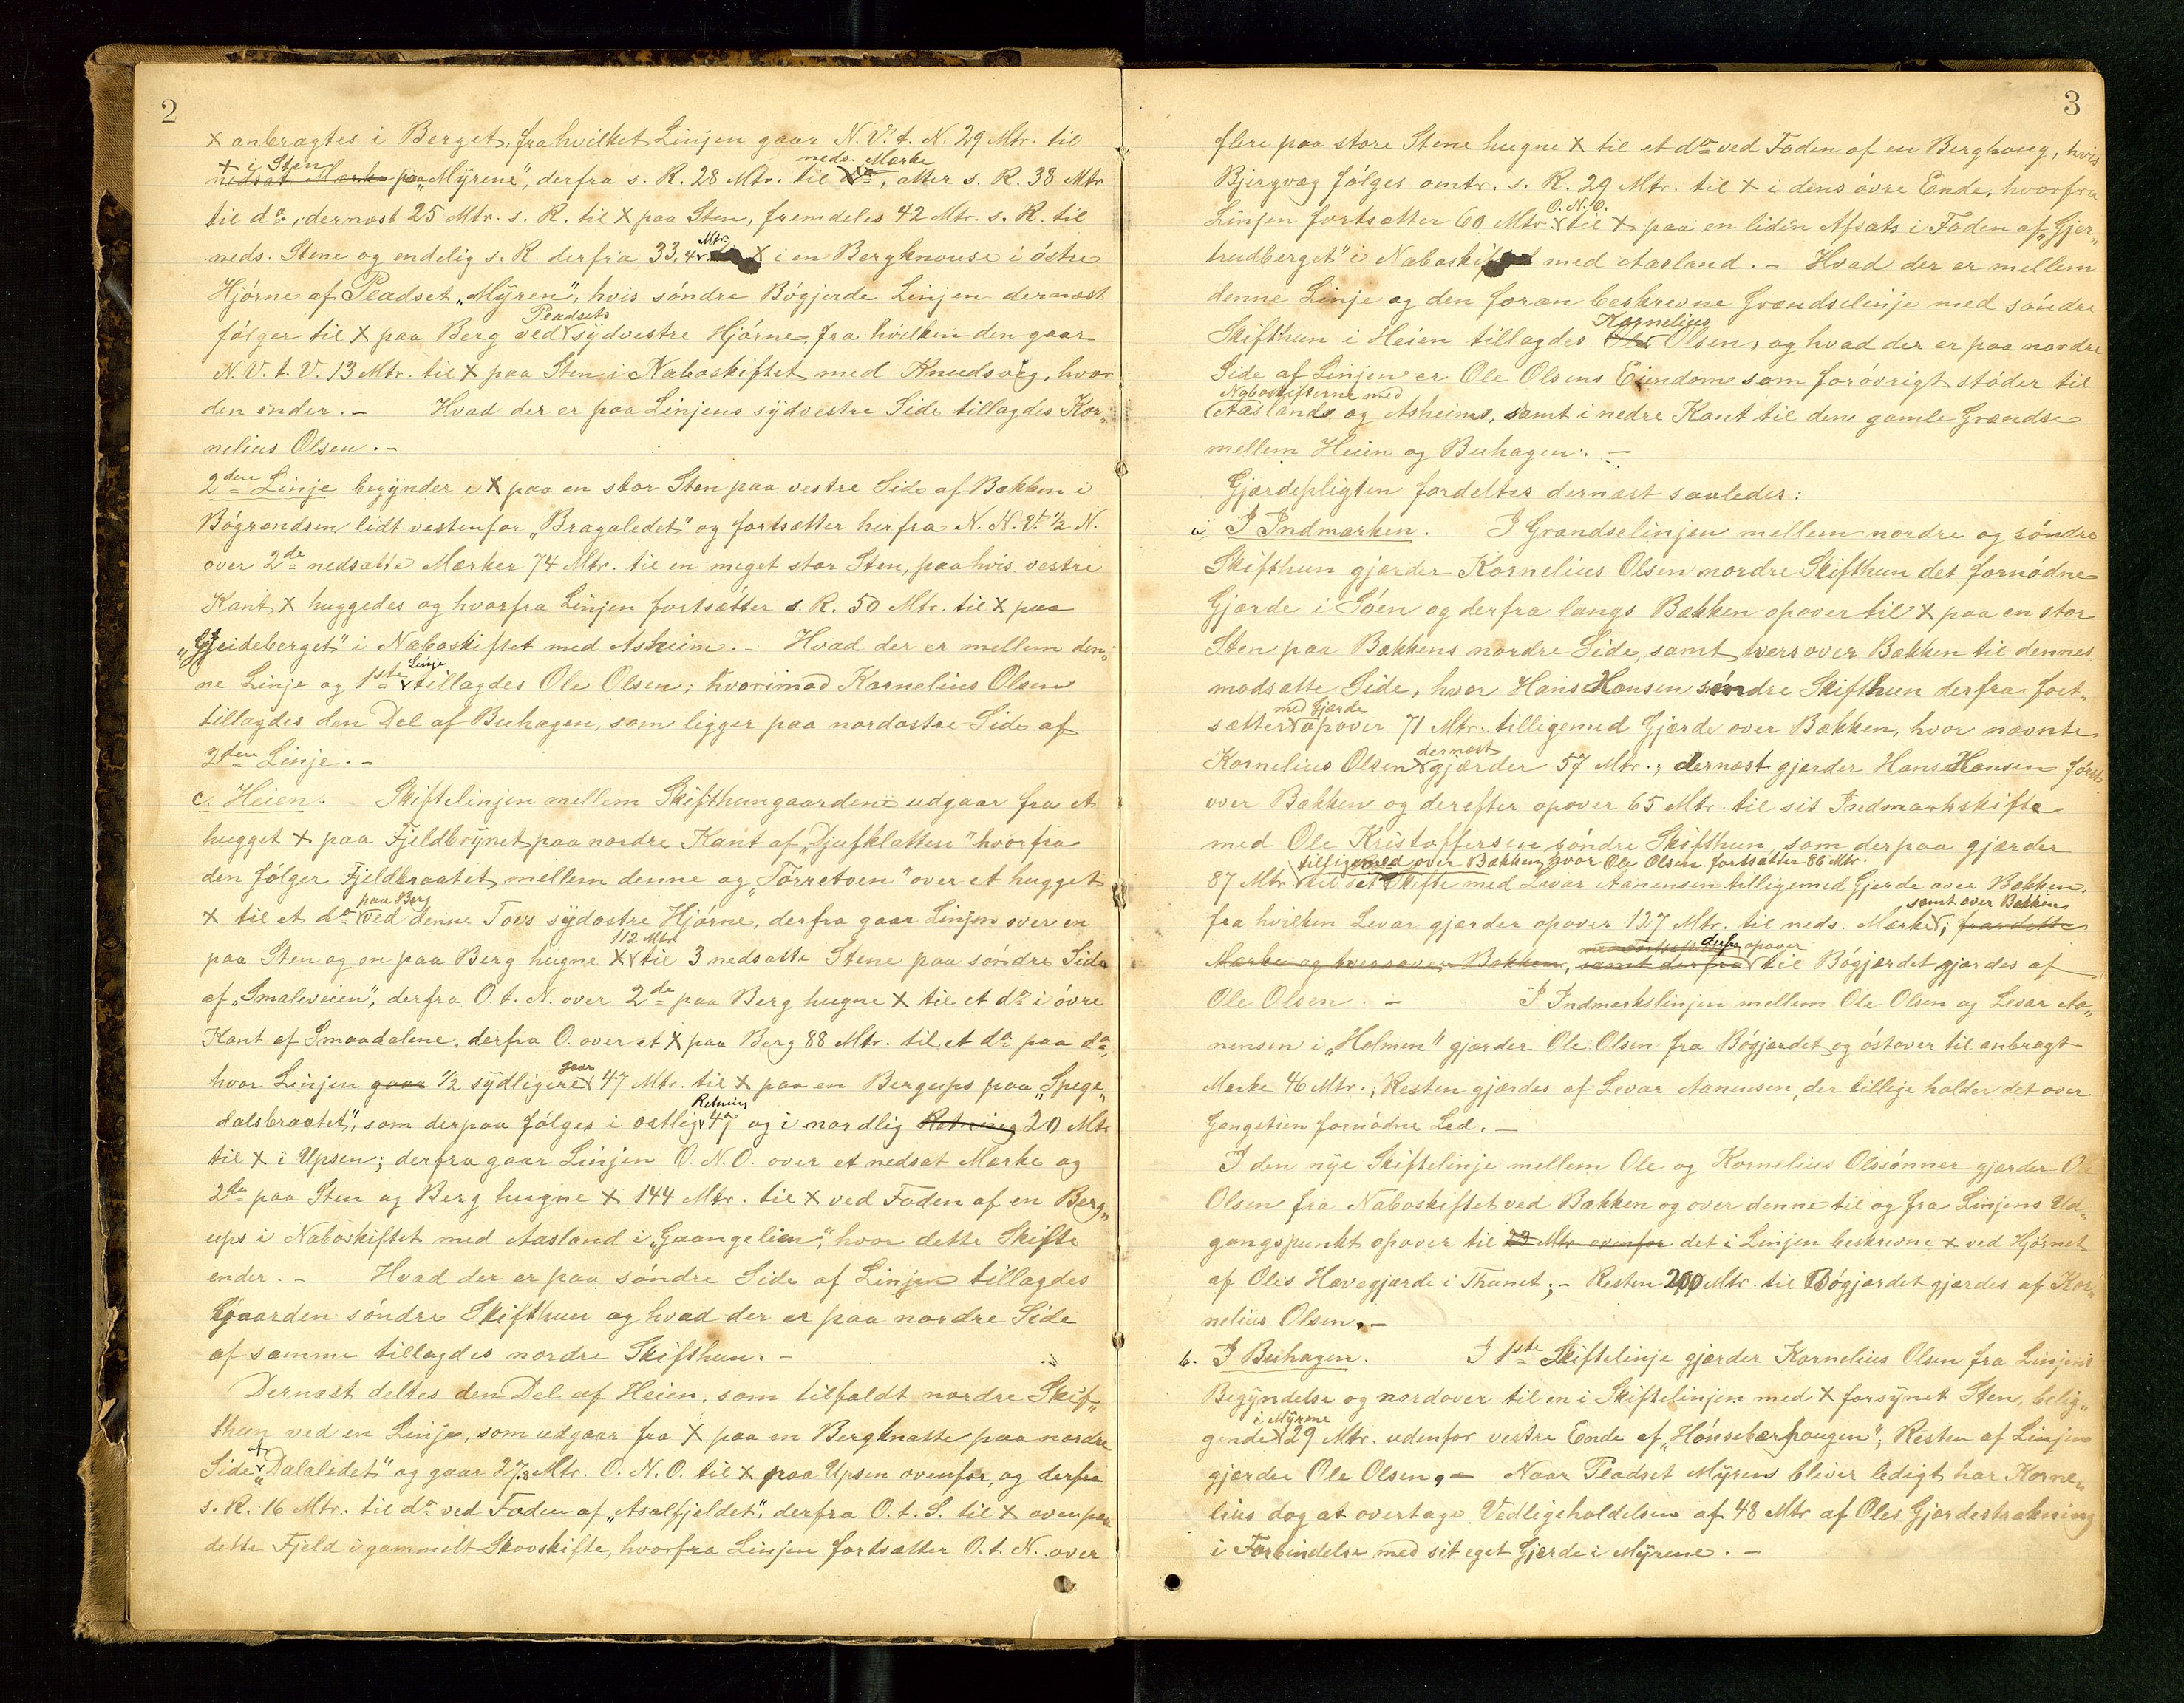 2
x anbragtes i Berget, fra hvilket Linjen gaar N. V. t. N. 29 Mtr. til
x i Sten neds. Mærke
nedsat Mærke paa „Mÿrene”, derfra s. R. 28 Mtr. til do, atter s. R. 38 Mtr
til do, dernæst 25 Mtr. s. R. til x paa Sten, fremdeles 42 Mtr. s. R. til
neds. Stene og endelig s. R. derfra 33,4 Mtr. x i en Bergknouse i östre
Hjörne af Pladset „Mÿren”, hvis söndre Bögjerde Linjen dernæst
Pladsets
fölger til x paa Berg ved sÿdvestre Hjörne, fra hvilken den gaar
N. V. t. V. 13 Mtr. til x paa Sten i Naboskiftet med Knudsvig, hvor
den ender. – Hvad der er paa Linjens sÿdvestre Side tillagdes Kor-
nelius Olsen. –
2den Linje begÿnder i x paa en stor Sten paa vestre Side af Bækken i
Bögrændsen lidt vestenfor „Bragaledet” og fortsætter herfra N. N. V. 1/2 N.
over 2de nedsatte Mærker 74 Mtr. til en meget stor Sten, paa hvis vestre
Kant x huggedes og hvorfra Linjen fortsætter s. R. 50 Mtr. til x paa
„Gjeideberget” i Naboskiftet med Asheim. – Hvad der er mellem den-
Linje
ne Linje og 1ste tillagdes Ole Olsen; hvorimod Kornelius Olsen
tillagdes den Del af Buhagen, som ligger paa nordøstre Side af
2den Linje. –
c. Heien. Skiftelinjen mellem Skifthungaardene udgaar fra et
hugget x paa Fjeldbrÿnet paa nordre Kant af „Djufklatten” hvorfra
den fölger Fjeldbraatet mellem denne og „Törretoen” over et hugget
paa Berg
x til et do ved denne Toes sÿdøstre Hjörne, derfra gaar Linjen over en
112 Mtr
paa Sten og en paa Berg hugne x til 3 nedsatte Stene paa söndre Side
af „Smaleveien”, derfra O. t. N. over 2de paa Berg hugne x til et do i övre
Kant af Smaadalene, derfra O. over et x paa Berg 88 Mtr. til et do paa do,
gaar
hvor Linjen gaar 1/2 sÿdligere 47 Mtr. til x paa en Bergups paa „Spege-
Retning
dalsbraatet”, som derpaa fölges i østlig 47 og i nordlig Retning 20 Mtr
til x i Upsen; derfra gaar Linjen O. N. O. over et nedsat Mærke og
2de paa Sten og Berg hugne x 144 Mtr. til x ved Foden af en Berg-
ups i Naboskiftet med Aasland i „Gaangelien”, hvor dette Skifte
ender. – Hvad der er paa söndre Side af Linjen tillagdes
Gaarden söndre Skifthun og hvad der er paa nordre Side
af samme tillagdes nordre Skifthun. –
Dernæst deltes den Del af Heien, som tilfaldt nordre Skif-
thun ved en Linje, som udgaar fra x paa en Bergknatte paa nordre
af
Side „Dalaledet” og gaar 27,8 Mtr. O. N. O. til x paa Upsen ovenfor, og derfra
s. R. 16 Mtr. til do ved Foden af „Asalfjeldet”, derfra O. t. S. til x ovenpaa
dette Fjeld i gammelt Skovskifte, hvorfra Linjen fortsætter O. t. N. over
3
flere paa store Stene hugne x til et do ved Foden af en Bergvæg, hvis
Bjergvæg fölges omtr. s. R. 29 Mtr. til x i dens övre Ende, hvorfra
O. N. O.
Linjen fortsætter 60 Mtr. til x paa en liden Afsats i Foden af „Gjer-
trudberget” i Naboskiftet med Aasland. – Hvad der er mellem
denne Linje og den foran beskrevne Grændselinje med söndre
Kornelius
Skifthun i Heien tillagdes Ole Olsen, og hvad der er paa nordre
Side af Linjen er Ole Olsens Eiendom som forövrigt stöder til
Naboskifterne med
Aaslands og Asheims, samt i nedre Kant til den gamle Grændse
mellem Heien og Buhagen. –
Gjærdepligten fordeltes dernæst saaledes:
a, I Indmarken. I Grændselinjen mellem nordre og söndre
Skifthun gjærder Kornelius Olsen nordre Skifthun det fornödne
Gjærde i Söen og derfra langs Bækken opover til x paa en stor
Sten paa Bækkens nordre Side, samt tvers over Bækken til dennes
modsatte Side, hvor Hans Hansen söndre Skifthun derfra fort-
med Gjærde
sætter opover 71 Mtr. tilligemed Gjærde over Bækken, hvor nævnte
dernæst
Kornelius Olsen gjærder 57 Mtr.; dernæst gjærder Hans Hansen först
over Bækken og derefter opover 65 Mtr. til sit Indmarkskifte
med Ole Kristoffersen söndre Skifthun, som derpaa gjærder
tilligemed over Bækken, hvor Ole Olsen fortsætter 86 Mtr.
87 Mtr. til det Skifte med Levar Aanensen tilligemed Gjerde over Bækken,
samt over Bækken
fra hvilken Levar gjærder opover 127 Mtr. til neds. Mærke; fra dette
derfra opover
Mærke og tvers over Bækken, samt derfra til Bögjærdet gjærdes af
Ole Olsen. – I Indmarkslinjen mellem Ole Olsen og Levar Aa-
nensen i „Holmen” gjærder Ole Olsen fra Bögjærdet og östover til anbragt
Mærke 46 Mtr.; Resten gjærdes af Levar Aanensen, der tillige holder det over
Gangstien fornödne Led. –
I den nÿe Skiftelinje mellem Ole og Kornelius Olssönner gjærder Ole
Olsen fra Naboskiftet ved Bækken og over denne til og fra Linjens Ud-
gangspunkt opover til 29 Mtr. ovenfor det i Linjen beskrevne x ved Hjörnet
af Oles Havegjærde i Thunet; – Resten 200 Mtr. til Bögjærdet gjærdes af Kor-
nelius Olsen. –
b. I Buhagen. I 1ste Skiftelinje gjærder Kornelius Olsen fra Linjens
Begÿndelse og nordover til en i Skiftelinjen med x forsÿnet Sten, belig-
i Mÿrene
gende 29 Mtr. udenfor vestre Ende af „Hönsebærhougen”; Resten af Linjen
gjærder Ole Olsen. – Naar Pladset Mÿren bliver ledigt har Korne-
lius dog at overtage Vedligeholdelsen af 48 Mtr af Oles Gjærdestrækning
i Forbindelse med sit eget Gjærde i Mÿrene. –